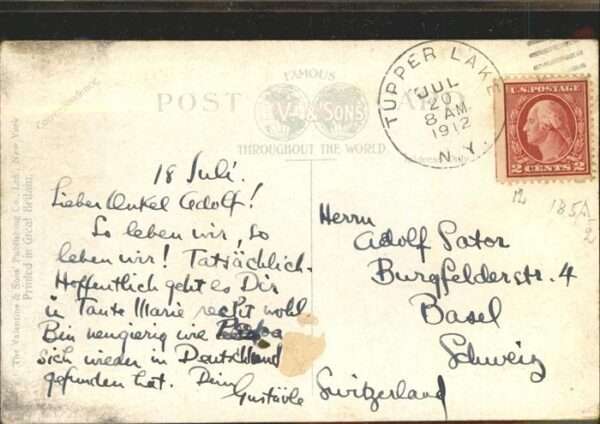 Correspondence.
FAMOUS
POST CARD
VAL & SONS
THROUGHOUT THE WORLD.
Address Only
The Valentine & Sons Publishing Co., Ltd., New York
Printed in Great Britain.
TUPPER LAKE
JUL
20
8 AM
1912
N.Y.
U.S. POSTAGE
2 CENTS 2
18 Juli.
Lieber Onkel Adolf!
So leben wir, so
leben wir! Tatsächlich.
Hoffentlich geht es Dir
u Tante Marie recht wohl
Bin neugierig wie
sich wieder in Deutschland
gefunden hat. Dein
Gustävle
Herrn
Adolf Pator
Burgfelderstr. 4
Basel
Schweiz
Switzerland